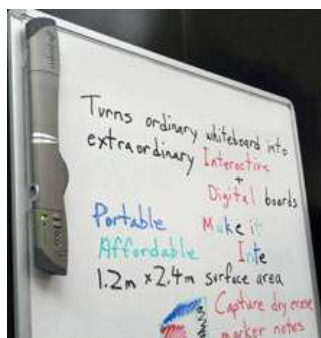 Turns ordinary whiteboard into
extraordinary Interactive
+
Digital boards
Portable Make it
Affordable Inte
1.2m x 2.4m surface area
Capture dry erase
marker notes